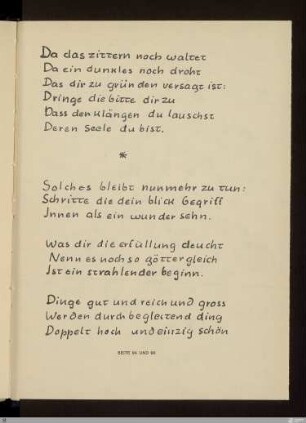 Da das zittern noch waltet
Da ein dunkles noch droht
Das dir zu gründen versagt ist:
Dringe die bitte dir zu
Dass den klängen du lauschst
Deren seele du bist.
*
Solches bleibt nunmehr zu tun:
Schritte die dein blick begriff
Innen als ein wunder sehn.
Was dir die erfüllung deucht
Nenn es noch so göttergleich
Ist ein strahlender beginn.
Dinge gut und reich und gross
Werden durch begleitend ding
Doppelt hoch und einzig schön